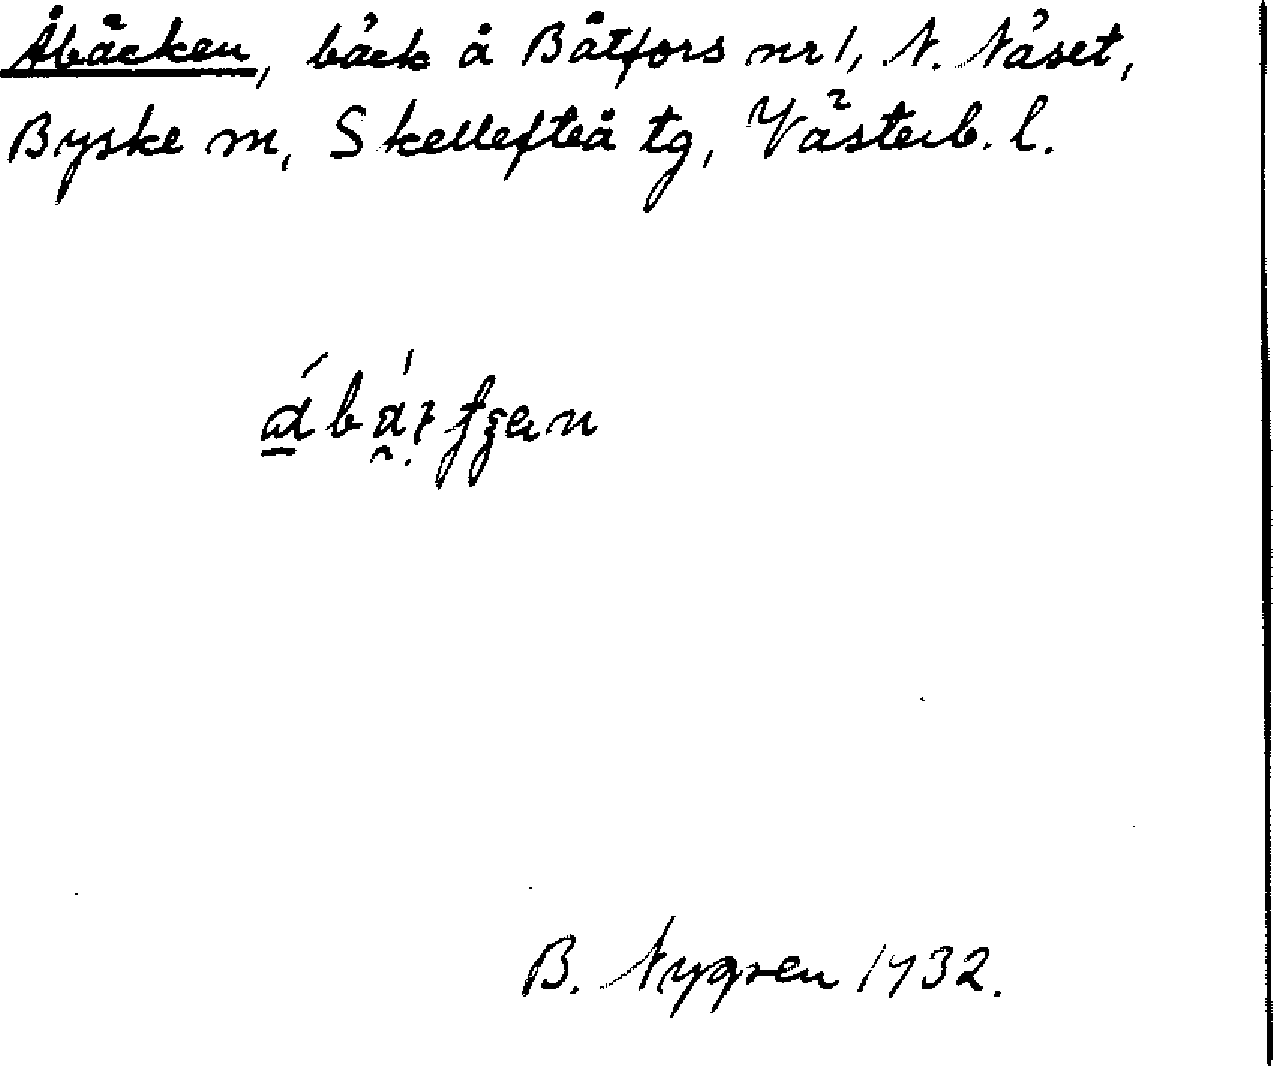 Åbäcken, bäck å Båtfors nr 1, N. Näset,
Byske sn, Skellefteå tg, Västerb. l.
B. Nygren 1932.